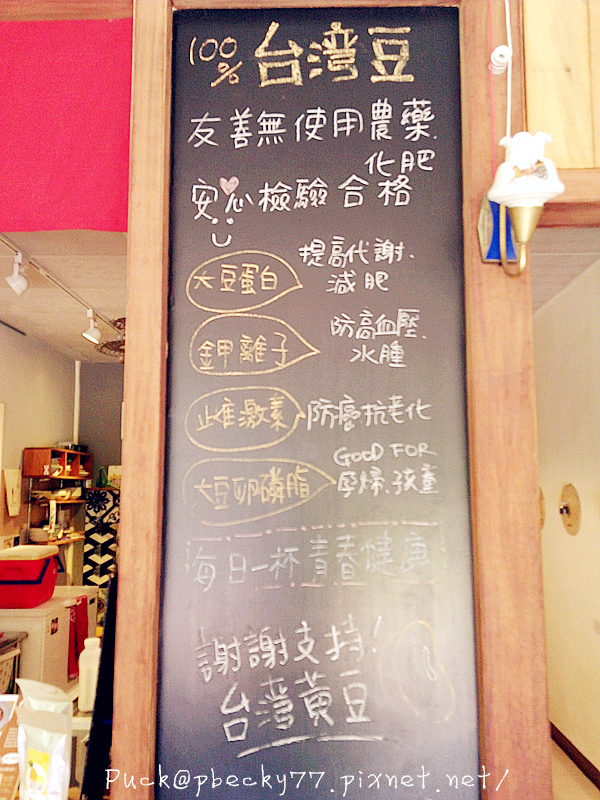 100% 台灣豆
友善無使用農藥、
化肥
安心檢驗合格
大豆蛋白
提高代謝、
減肥
鉀離子
防高血壓、
水腫
雌激素
防癌.抗老化
大豆卵磷脂
GOOD FOR
孕婦、孩童
每日一杯青春健康
謝謝支持!
台灣黃豆
Puck@pbecky77.pixnet.net/